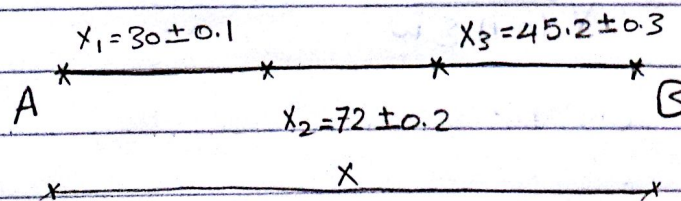 X₁=30±0.1 X₃=45.2±0.3
A B
X₂=72±0.2
X